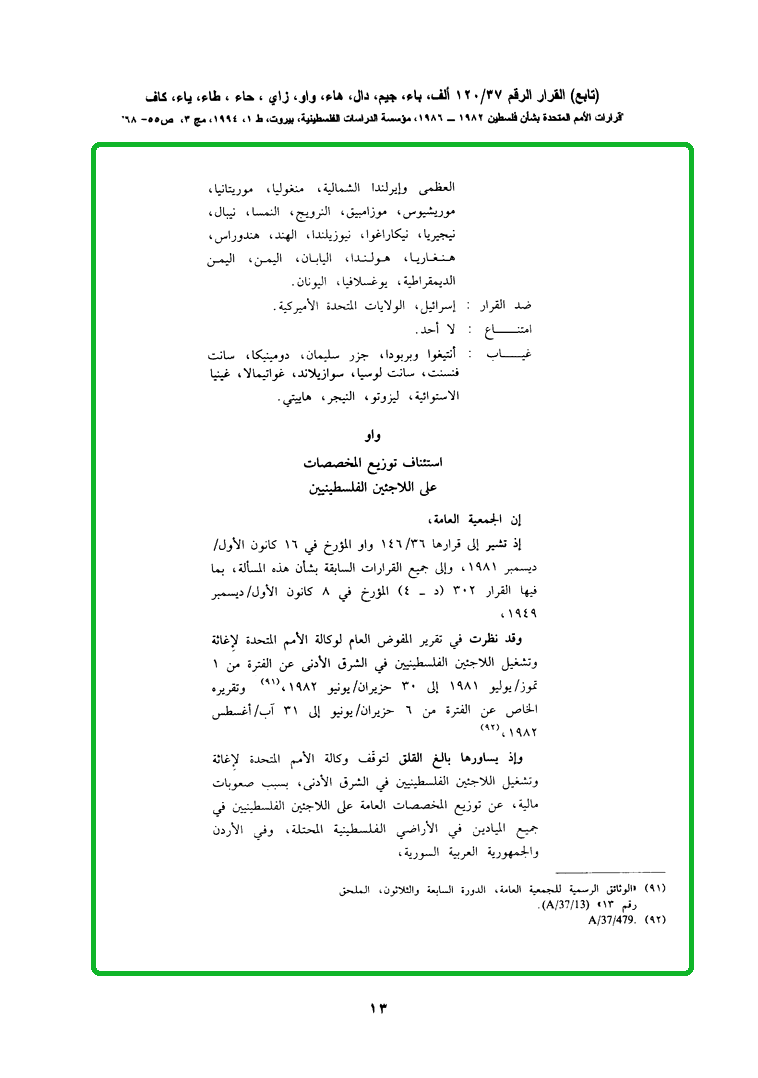 (تابع) القرار الرقم ١٢٠/٣٧ ألف، باء، جيم، دال، هاء، واو، زاي ، حاء ، طاء، ياء، كاف
"قرارات الأمم المتحدة بشأن فلسطين ١٩٨٢ ــ ١٩٨٦، مؤسسة الدراسات الفلسطينية، بيروت، ط ١، ١٩٩٤، مج ٣، ص٥٥- ٦٨"
العظمى وإيرلندا الشمالية، منغوليا، موريتانيا،
موريشيوس، موزامبيق، النرويج، النمسا، نيبال،
نيجيريا، نيكاراغوا، نيوزيلندا، الهند، هندوراس،
هنغاريا، هولندا، اليابان، اليمن، اليمن
الديمقراطية، يوغسلافيا، اليونان.
ضد القرار : إسرائيل، الولايات المتحدة الأميركية.
امتنـــاع : لا أحد.
غيـــاب : أنتيغوا وبربودا، جزر سليمان، دومينيكا، سانت
فنسنت، سانت لوسيا، سوازيلاند، غواتيمالا، غينيا
الاستوائية، ليزوتو، النيجر، هاييتي.
واو
استئناف توزيع المخصصات
على اللاجئين الفلسطينيين
إن الجمعية العامة،
إذ تشير إلى قرارها ١٤٦/٣٦ واو المؤرخ في ١٦ كانون الأول/
ديسمبر ١٩٨١، وإلى جميع القرارات السابقة بشأن هذه المسألة، بما
فيها القرار ٣٠٢ (د ــ ٤) المؤرخ في ٨ كانون الأول/ديسمبر
١٩٤٩،
وقد نظرت في تقرير المفوض العام لوكالة الأمم المتحدة لإغاثة
وتشغيل اللاجئين الفلسطينيين في الشرق الأدنى عن الفترة من ١
تموز/يوليو ١٩٨١ إلى ٣٠ حزيران/يونيو ١٩٨٢،(٩١) وتقريره
الخاص عن الفترة من ٦ حزيران/يونيو إلى ٣١ آب/أغسطس
١٩٨٢،(٩٢)
وإذ يساورها بالغ القلق لتوقّف وكالة الأمم المتحدة لإغاثة
وتشغيل اللاجئين الفلسطينيين في الشرق الأدنى، بسبب صعوبات
مالية، عن توزيع المخصصات العامة على اللاجئين الفلسطينيين في
جميع الميادين في الأراضي الفلسطينية المحتلة، وفي الأردن
والجمهورية العربية السورية،
(٩١) «الوثائق الرسمية للجمعية العامة، الدورة السابعة والثلاثون، الملحق
رقم ١٣» (A/37/13).
(٩٢) A/37/479.
١٣